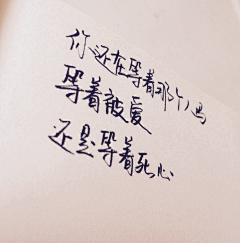 你还在等着那个人吗
等着被爱
还是等着死心